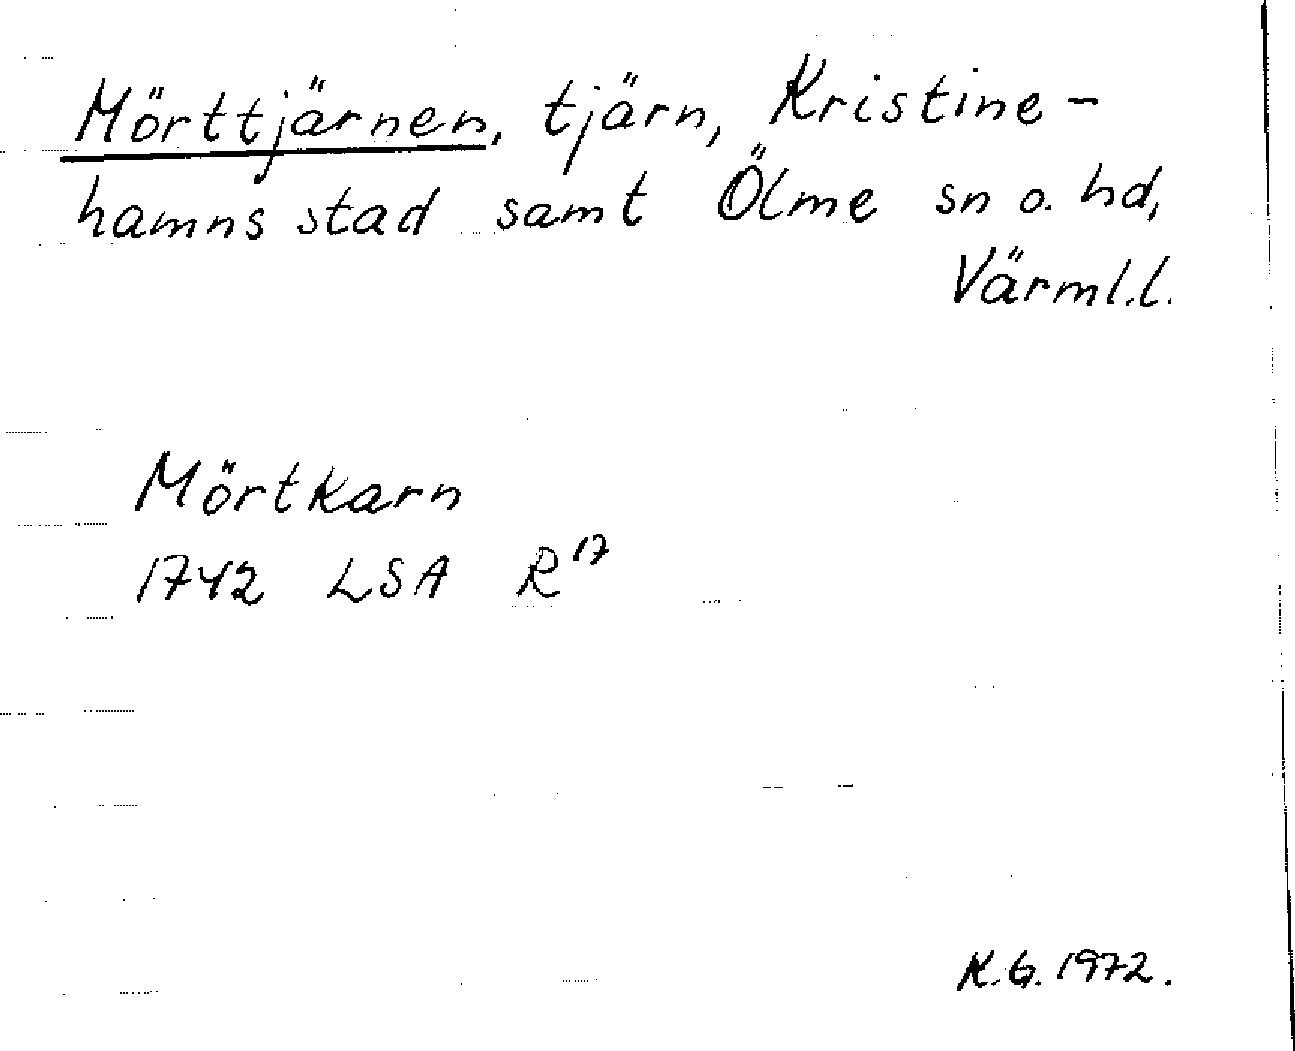 Mörttjärnen, tjärn, Kristine-
hamns stad samt Ölme sn o. hd,
Värml.l.
Mörtkarn
1742 LSA R17
K.G. 1972.